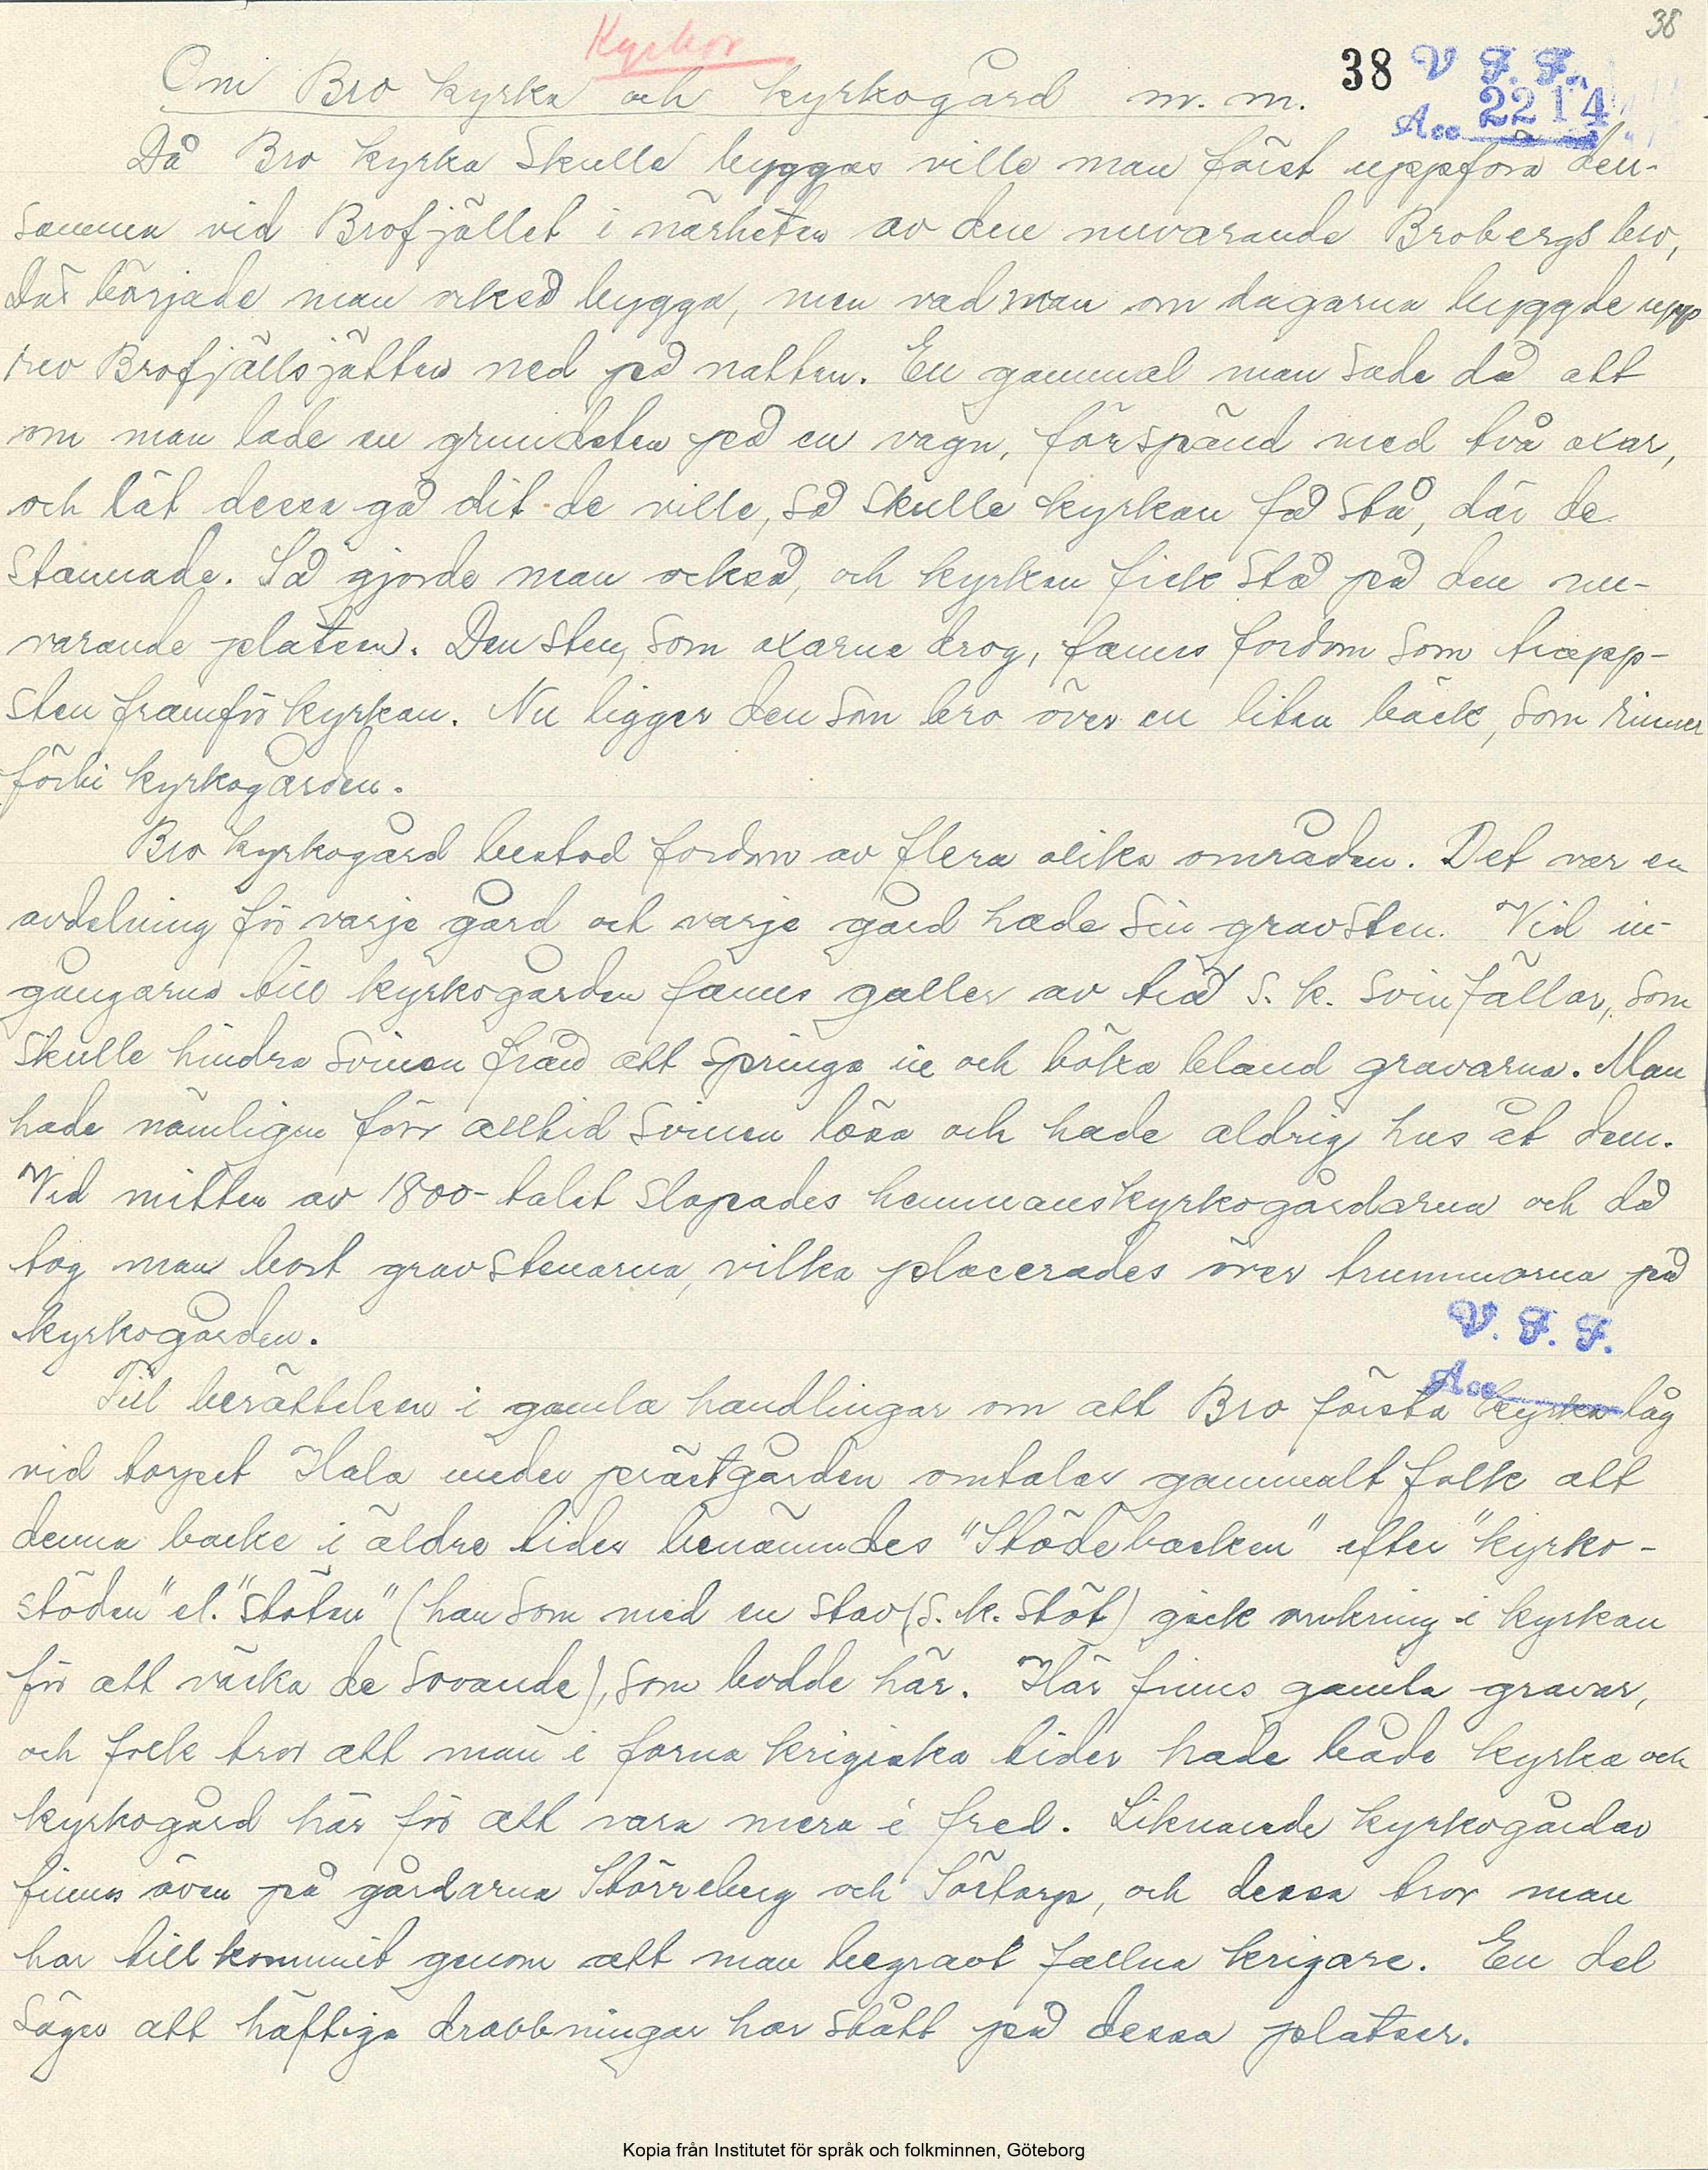 38
Kyrkor
Om Bro kyrka och kyrkogård m. m.
38 V. F. F.
Acc 2214
Då Bro kyrka skulle byggas ville man först uppföra den-
samma vid Brofjället i närheten av den nuvarande Brobergs bro,
Där började man också bygga, men vad man om dagarna byggde upp
rev Brofjällsjätten ned på natten. En gammal man sade då att
om man lade en grundsten på en vagn, förspänd med två oxar,
och lät dessa gå dit de ville, så skulle kyrkan få stå, där de
stannade. Så gjorde man också, och kyrkan fick stå på den nu-
varande platsen. Den sten, som oxarna drog, fanns fordom som trapp-
sten framför kyrkan. Nu ligger den som bro över en liten bäck, som rinner
förbi kyrkogården.
Bro kyrkogård bestod fordom av flera olika områden. Det var en
avdelning för varje gård och varje gård hade sin gravsten. Vid in-
gångarna till kyrkogården fanns galler av trä s. k. svinfällor, som
skulle hindra svinen från att springa in och böka bland gravarna. Man
hade nämligen förr alltid svinen lösa och hade aldrig hus åt dem.
Vid mitten av 1800-talet slopades hemmanskyrkogårdarna och då
tog man bort gravstenarna, vilka placerades över trummorna på
kyrkogården.
V. F. F.
Acc
Till berättelsen i gamla handlingar om att Bro första kyrka låg
vid torpet Hala under prästgården omtalar gammalt folk att
denna backe i äldre tider benämndes "Stödebacken" efter "kyrko-
stöden" el. "stöten" (han som med en stav (s. k. stöt) gick omkring i kyrkan
för att väcka de sovande), som bodde här. Här finns gamla gravar,
och folk tror att man i forna krigiska tider hade både kyrka och
kyrkogård här för att vara mera i fred. Liknande kyrkogårdar
finns även på gårdarna Störreberg och Sörtorp, och dessa tror man
har tillkommit genom att man begravt fallna krigare. En del
säger att häftiga drabbningar har stått på dessa platser.
Kopia från Institutet för språk och folkminnen, Göteborg